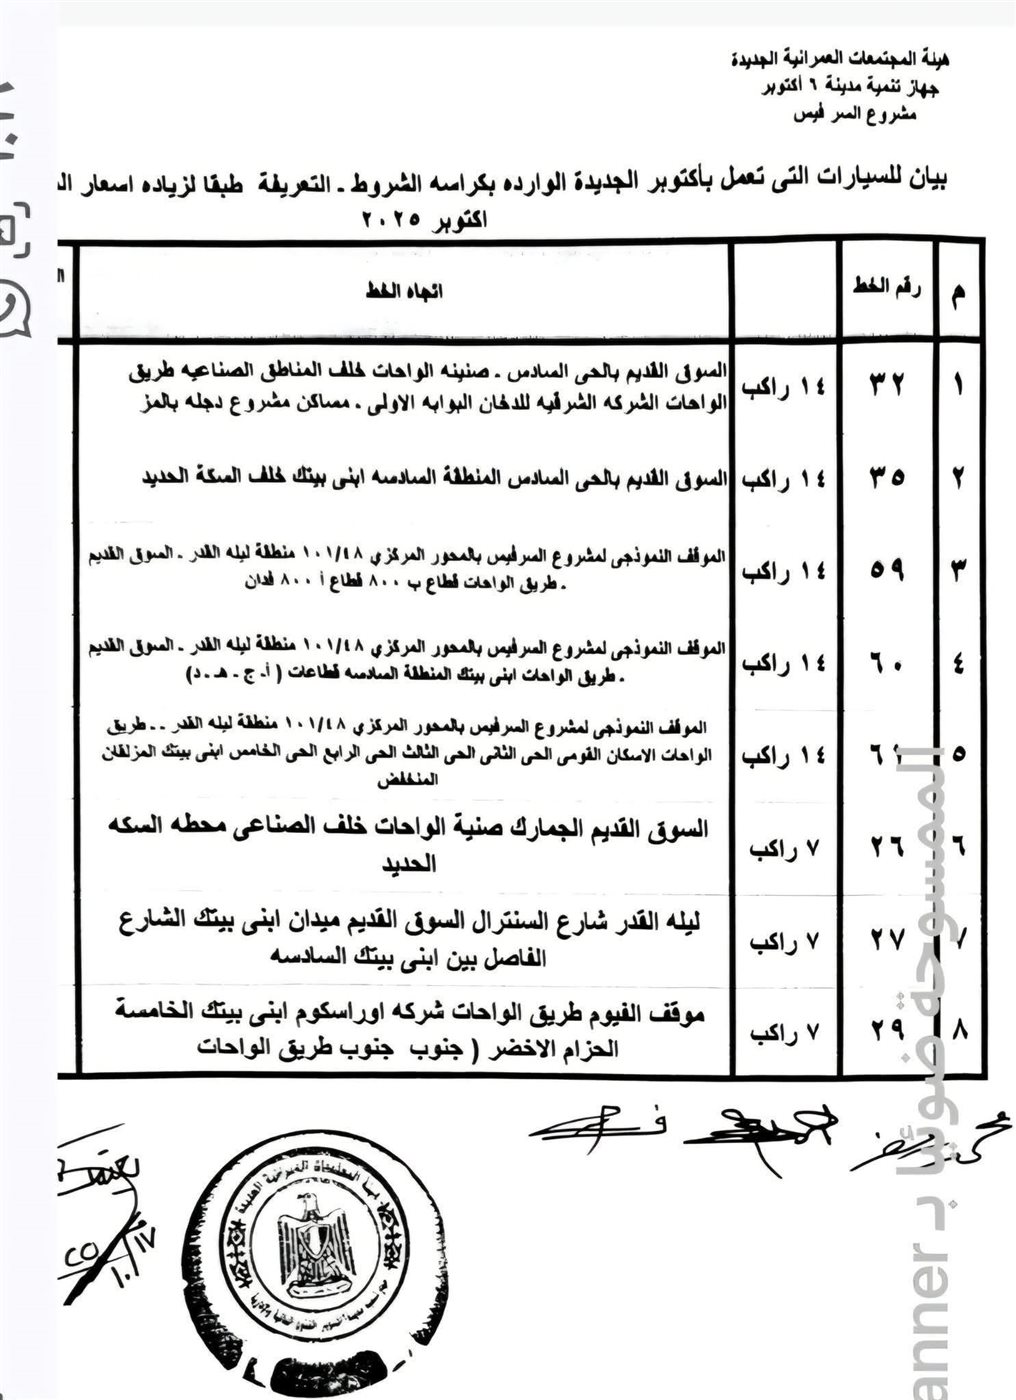 هيئة المجتمعات العمرانية الجديدة
جهاز تنمية مدينة ٦ أكتوبر
مشروع السرفيس
بيان للسيارات التى تعمل بأكتوبر الجديدة الوارده بكراسه الشروط ـ التعريفة طبقا لزياده اسعار
اكتوبر ٢٠٢٥
م رقم الخط اتجاه الخط
١ ٣٢ ١٤ راكب السوق القديم بالحى السادس ـ صنينه الواحات خلف المناطق الصناعيه طريق
الواحات الشركه الشرقيه للدخان البوابه الاولى ـ مساكن مشروع دجله بالمز
٢ ٣٥ ١٤ راكب السوق القديم بالحى السادس المنطقة السادسه ابنى بيتك خلف السكة الحديد
٣ ٥٩ ١٤ راكب الموقف النموذجى لمشروع السرفيس بالمحور المركزي ١٠١/٤٨ منطقة ليله القدر ـ السوق القديم
ـ طريق الواحات قطاع ب ٨٠٠ قطاع أ ٨٠٠ فدان
٤ ٦٠ ١٤ راكب الموقف النموذجى لمشروع السرفيس بالمحور المركزي ١٠١/٤٨ منطقة ليله القدر ـ السوق القديم
ـ طريق الواحات ابنى بيتك المنطقة السادسه قطاعات ( أ ـ ج ـ هـ ـ د)
٥ ٦١ ١٤ راكب الموقف النموذجى لمشروع السرفيس بالمحور المركزي ١٠١/٤٨ منطقة ليله القدر ـ ـ طريق
الواحات الاسكان القومى الحى الثانى الحى الثالث الحى الرابع الحى الخامس ابنى بيتك المزلقان
المنخفض
٦ ٢٦ ٧ راكب السوق القديم الجمارك صنية الواحات خلف الصناعى محطه السكه
الحديد
٧ ٢٧ ٧ راكب ليله القدر شارع السنترال السوق القديم ميدان ابنى بيتك الشارع
الفاصل بين ابنى بيتك السادسه
٨ ٢٩ ٧ راكب موقف الفيوم طريق الواحات شركه اوراسكوم ابنى بيتك الخامسة
الحزام الاخضر ( جنوب جنوب طريق الواحات
هيئة المجتمعات العمرانية الجديدة
١٠/١٧
الممسوحة ضوئيا بـ anner